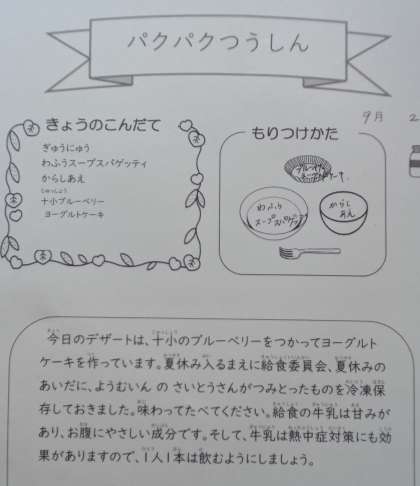 パクパクつうしん
9月 2
きょうのこんだて
ぎゅうにゅう
わふうスープスパゲッティ
からしあえ
じゅっしょう
十小ブルーベリー
ヨーグルトケーキ
もりつけかた
わふう
スープスパゲッティ
からし
あえ
今日のデザートは、十小のブルーベリーをつかってヨーグルト
ケーキを作っています。夏休み入るまえに給食委員会、夏休みの
あいだに、ようむいん の さいとうさんがつみとったものを冷凍保
存しておきました。味わってたべてください。給食の牛乳は甘みが
あり、お腹にやさしい成分です。そして、牛乳は熱中症対策にも効
果がありますので、1人1本は飲むようにしましょう。